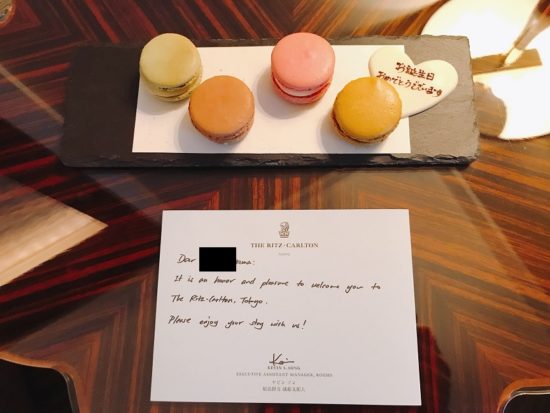 お誕生日
おめでとうございます
THE RITZ-CARLTON
Dear
It is an honor and pleasure to welcome you to
The Ritz-Carlton, Tokyo.
Please enjoy your stay with us!
EXECUTIVE ASSISTANT MANAGER, ROOMS